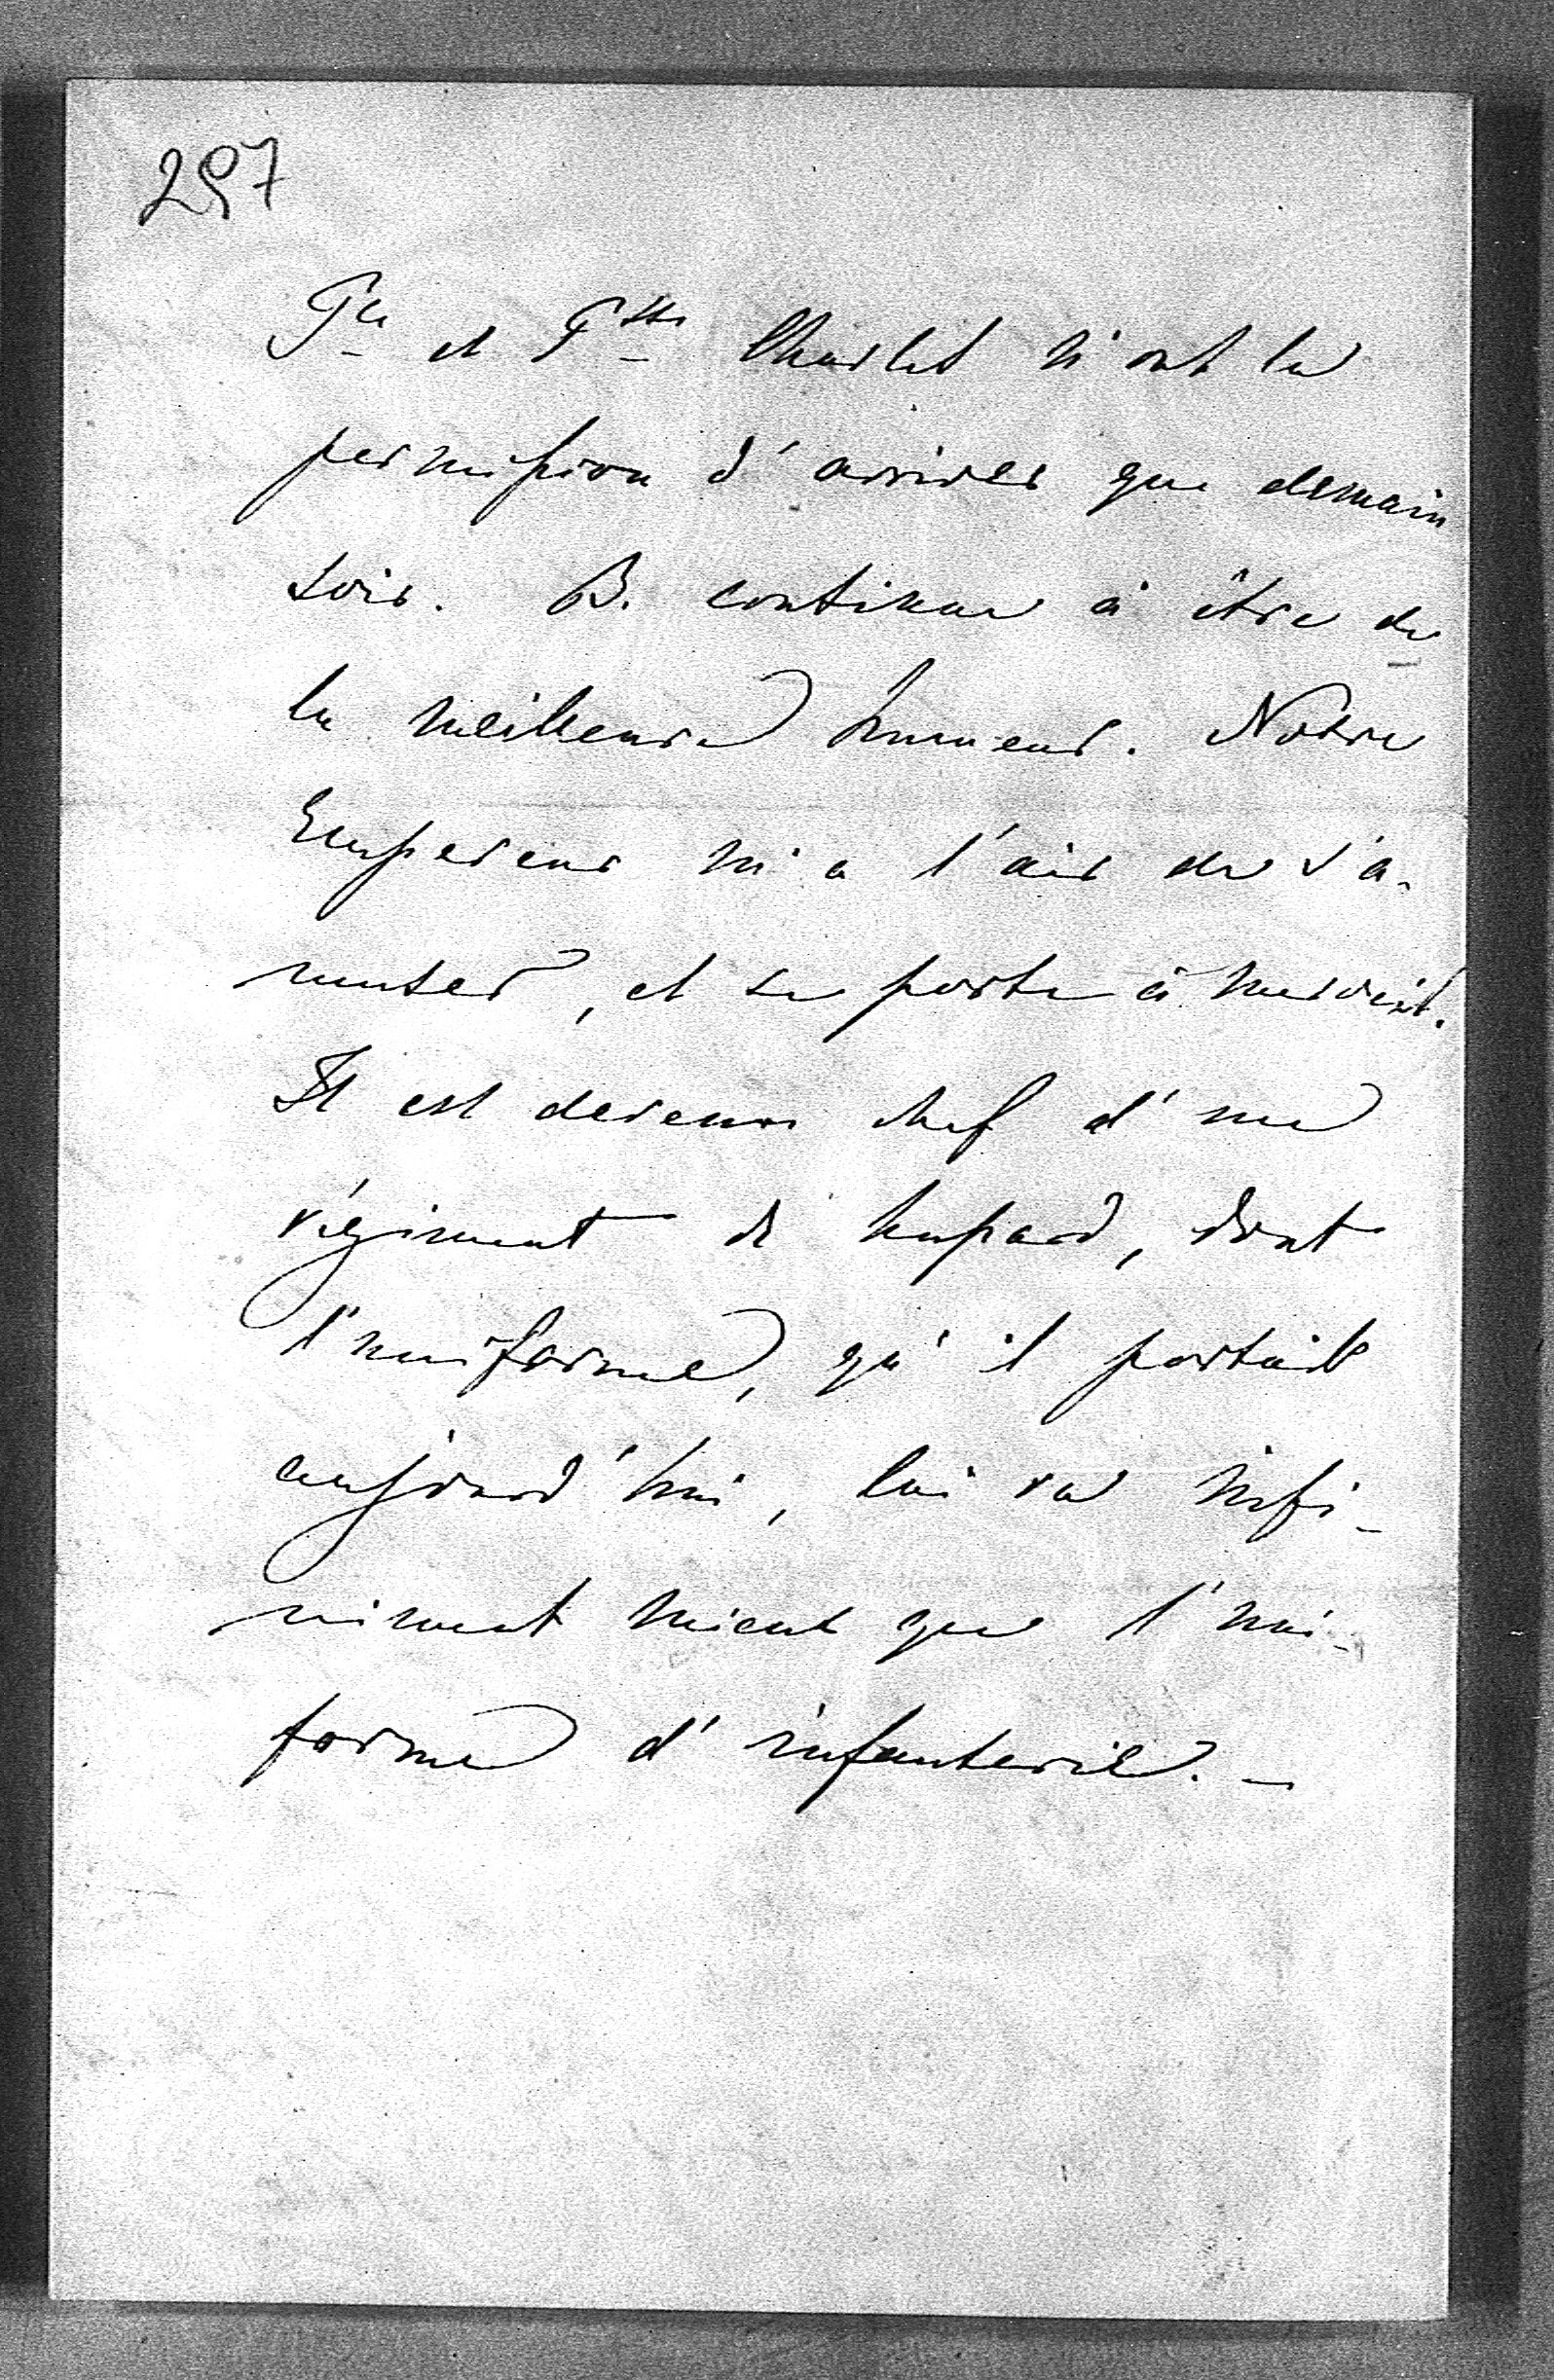 297
Pce et Psse Charles n'ont la
permission d'arriver que demain
soir. B. continue à être de
la meilleure humeur. Notre
Empereur m'a l'air de s'a-
muser, et se porte à merveil.
Il est devenu chef d'un
régiment de hussard, dont
l'uniforme, qu'il portait
aujourd'hui, lui va infi-
niment mieux que l'uni-
forme d'infanterie. —